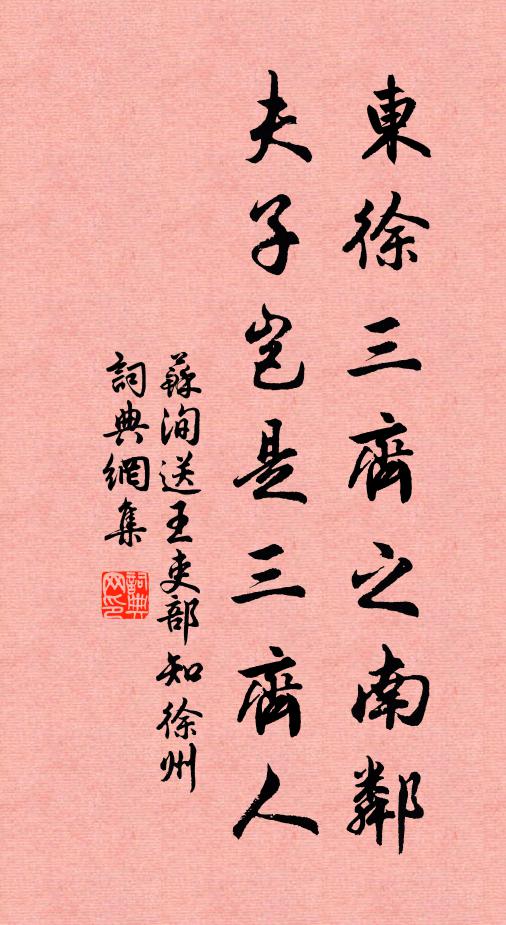 東徐三齊之南鄰
夫子豈是三齊人
蘇洵送王吏部知徐州
詞典網集
詞典网印